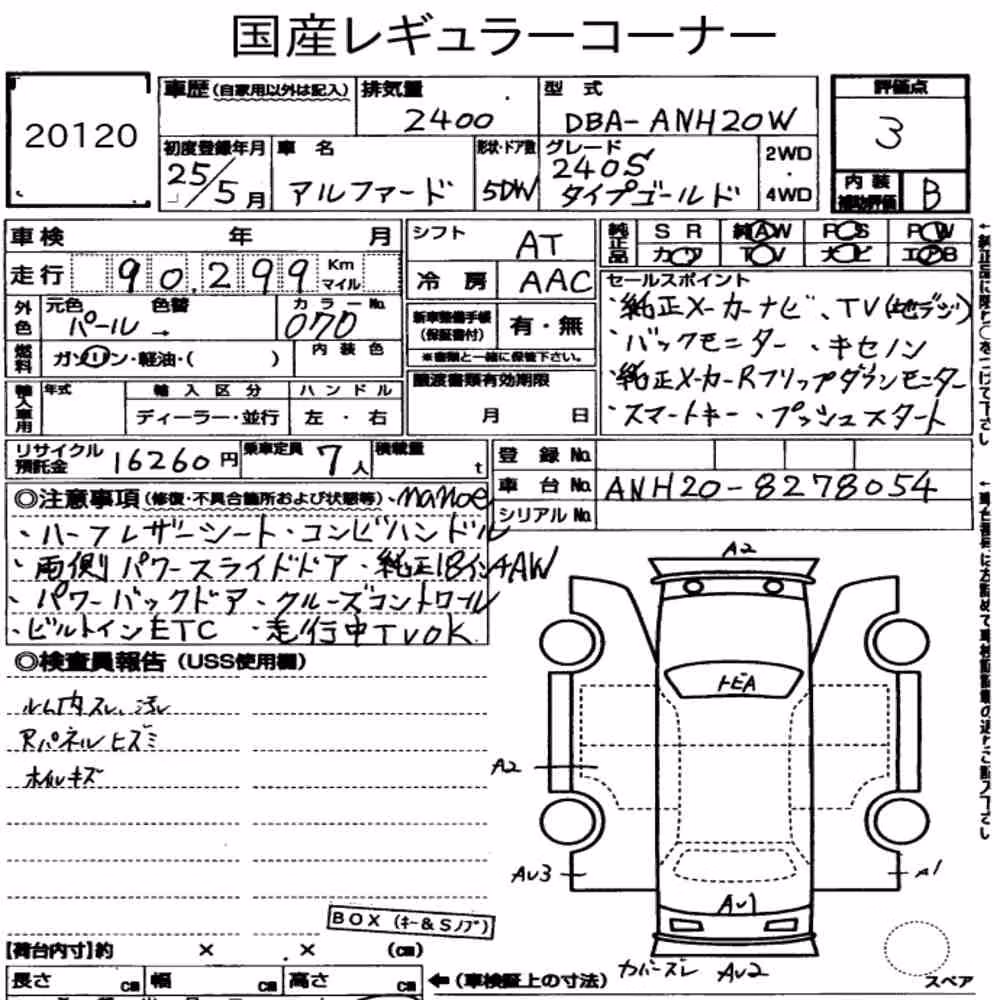 国産レギュラーコーナー
20120
車歴(自家用以外は記入) 排気量 型式 評価点
2400 DBA-ANH20W 3
初度登録年月 車名 形状・ドア数 グレード 2WD
25/5月 アルファード 5DW 240S タイプゴールド 4WD
内装補助評価 B
車検 年 月 シフト AT 純正品 SR 純AW PS PW
カワ TV ナビ エアB
走行 90,299 Km マイル 冷房 AAC
セールスポイント
外色 元色 色替 カラーNo.
パール → 070
・純正メーカーナビ、TV(地デジ)
・バックモニター ・キセノン
・純正メーカーRフリップダウンモニター
・スマートキー・プッシュスタート
新車整備手帳(保証書付) 有・無
※書類と一緒に保管下さい。
燃料 ガソリン・軽油・( ) 内装色
輸入車用 年式 輸入区分 ハンドル
ディーラー・並行 左・右
譲渡書類有効期限
月 日
リサイクル預託金 16260円 乗車定員 7人 積載量 t
登録No.
車台No. ANH20-8278054
シリアルNo.
◎注意事項(修復・不具合箇所および状態等)・nanoe
・ハーフレザーシート・コンビハンドル
・両側パワースライドドア・純正18インチAW
・パワーバックドア・クルーズコントロール
・ビルトインETC ・走行中TVOK
◎検査員報告(USS使用欄)
ルーム内スレ、汚レ
Rパネルヒズミ
ホイルキズ
A2
トビA
A2
AU3
A1
AU1
カバーズレ AU2
BOX(キー&Sノブ)
スペア
【荷台内寸】約 × × (cm)
長さ cm 幅 cm 高さ cm ←(車検証上の寸法)